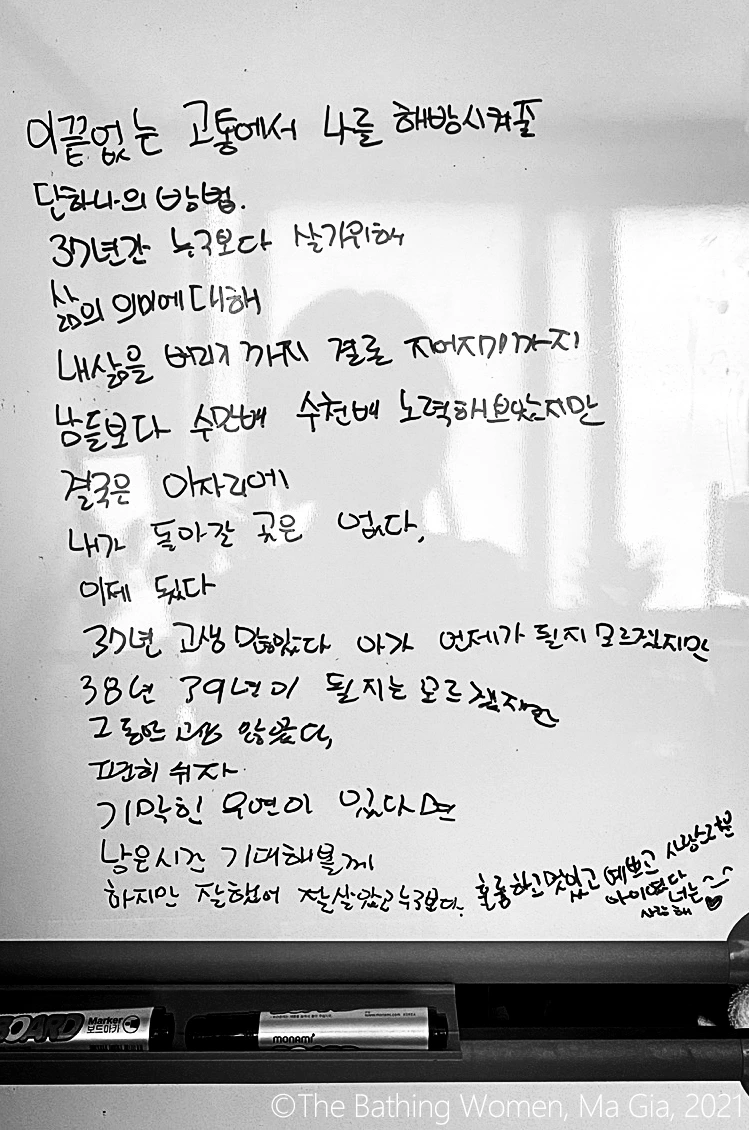 이끝없는 고통에서 나를 해방시켜줄
단하나의 방법.
37년간 누구보다 살기위해
삶의 의미에대해
내삶을 버리기까지 결론 지어지기까지
남들보다 수만배 수천배 노력해보았지만
결국은 이자리에
내가 돌아갈 곳은 없다.
이제 됐다
37년 고생 많았다 아가 언제가 될지 모르겠지만
38년 39년이 될지는 모르겠지만
그동안 고생 많았다.
편히 쉬자
기막힌 우연이 있다면
남은시간 기대해볼게
하지만 잘했어 잘살았고 누구보다.
훌륭하고 멋있고 예쁘고 사랑스러운
아이였다 너는 ^_^
사랑해 ♥
BOARD Marker 보드마카
monami
BOARD
©The Bathing Women, Ma Gia, 2021